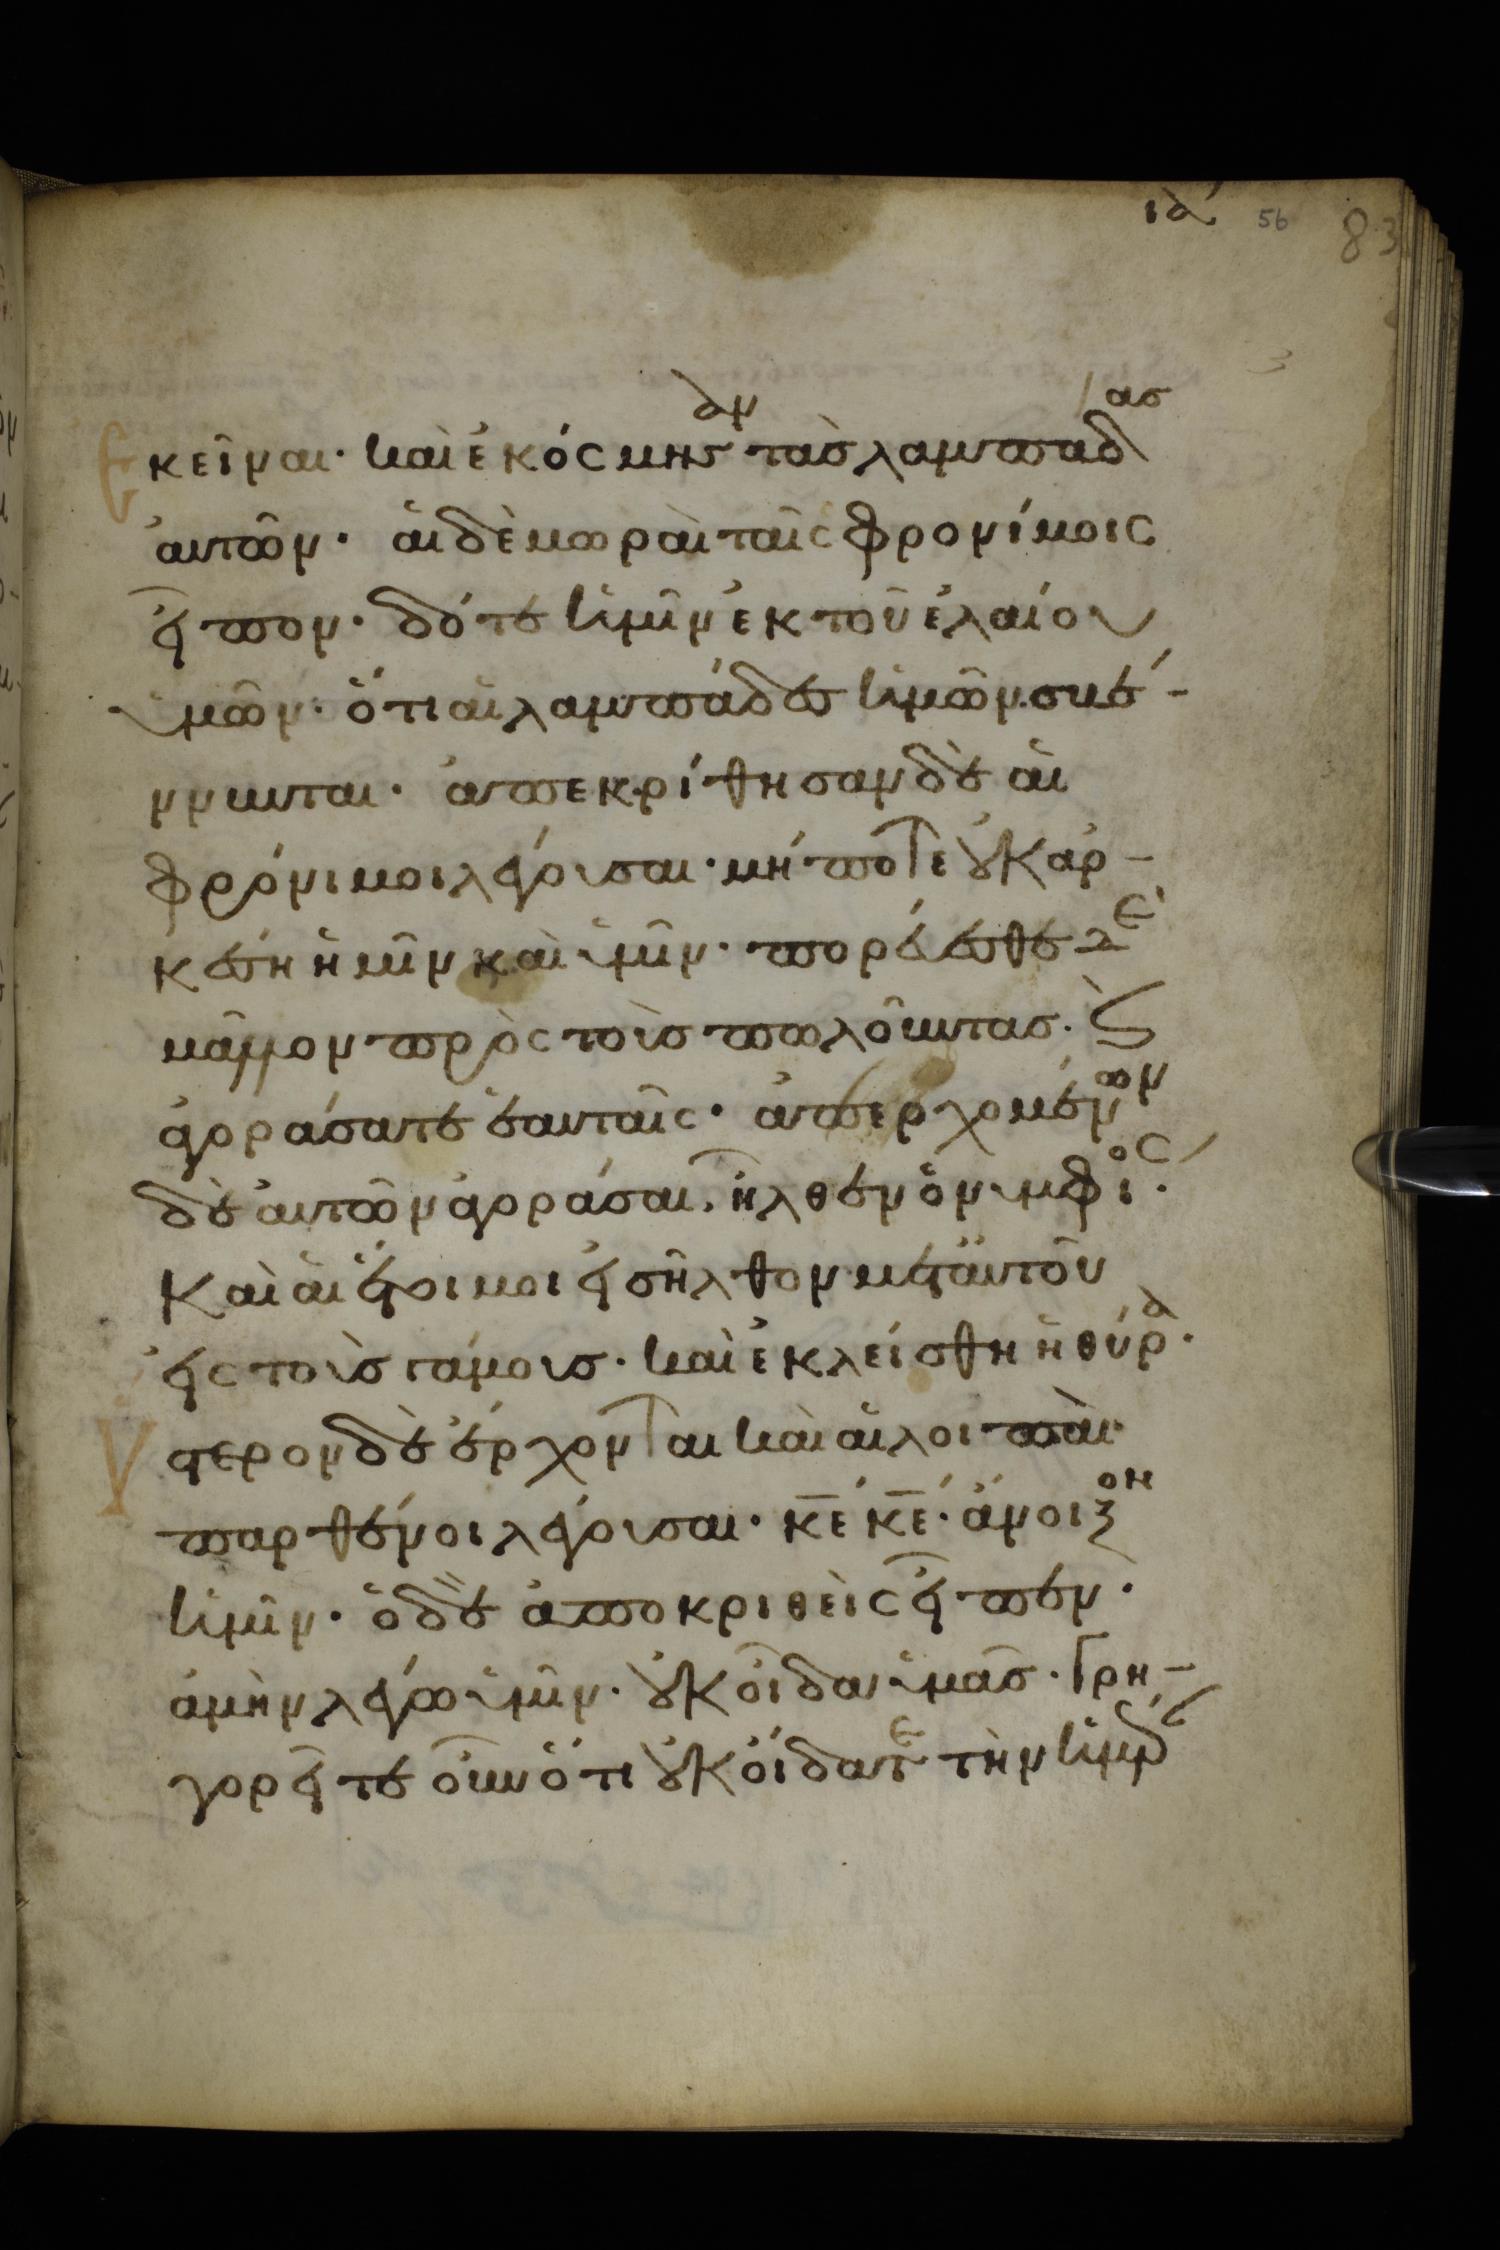 ιδ´ 56 83
3
Ἐκεῖναι· καὶ ἐκόσμησαν τὰς λαμπάδας
αὐτῶν· αἱ δὲ μωραὶ ταῖς φρονίμοις
εἶπον· δότε ἡμῖν ἐκ τοῦ ἐλαίου
ὑμῶν· ὅτι αἱ λαμπάδες ἡμῶν σβέ-
ννυνται· ἀπεκρίθησαν δὲ αἱ
φρόνιμοι λέγουσαι· μήποτε οὐκ ἀρ-
κέσῃ ἡμῖν καὶ ὑμῖν· πορεύεσθε δὲ
μᾶλλον πρὸς τοὺς πωλοῦντας· καὶ
ἀγοράσατε ἑαυταῖς· ἀπερχομένων
δὲ αὐτῶν ἀγοράσαι, ἦλθεν ὁ νυμφίος·
Καὶ αἱ ἕτοιμοι εἰσῆλθον μετ' αὐτοῦ
εἰς τοὺς γάμους· καὶ ἐκλείσθη ἡ θύρα·
Ὕστερον δὲ ἔρχονται καὶ αἱ λοιπαὶ
παρθένοι λέγουσαι· κ̅ε̅ κ̅ε̅· ἄνοιξον
ἡμῖν· ὁ δὲ ἀποκριθεὶς εἶπεν·
ἀμὴν λέγω ὑμῖν· οὐκ οἶδα ὑμᾶς· Γρη-
γορεῖτε οὖν ὅτι οὐκ οἴδατε τὴν ἡμέραν